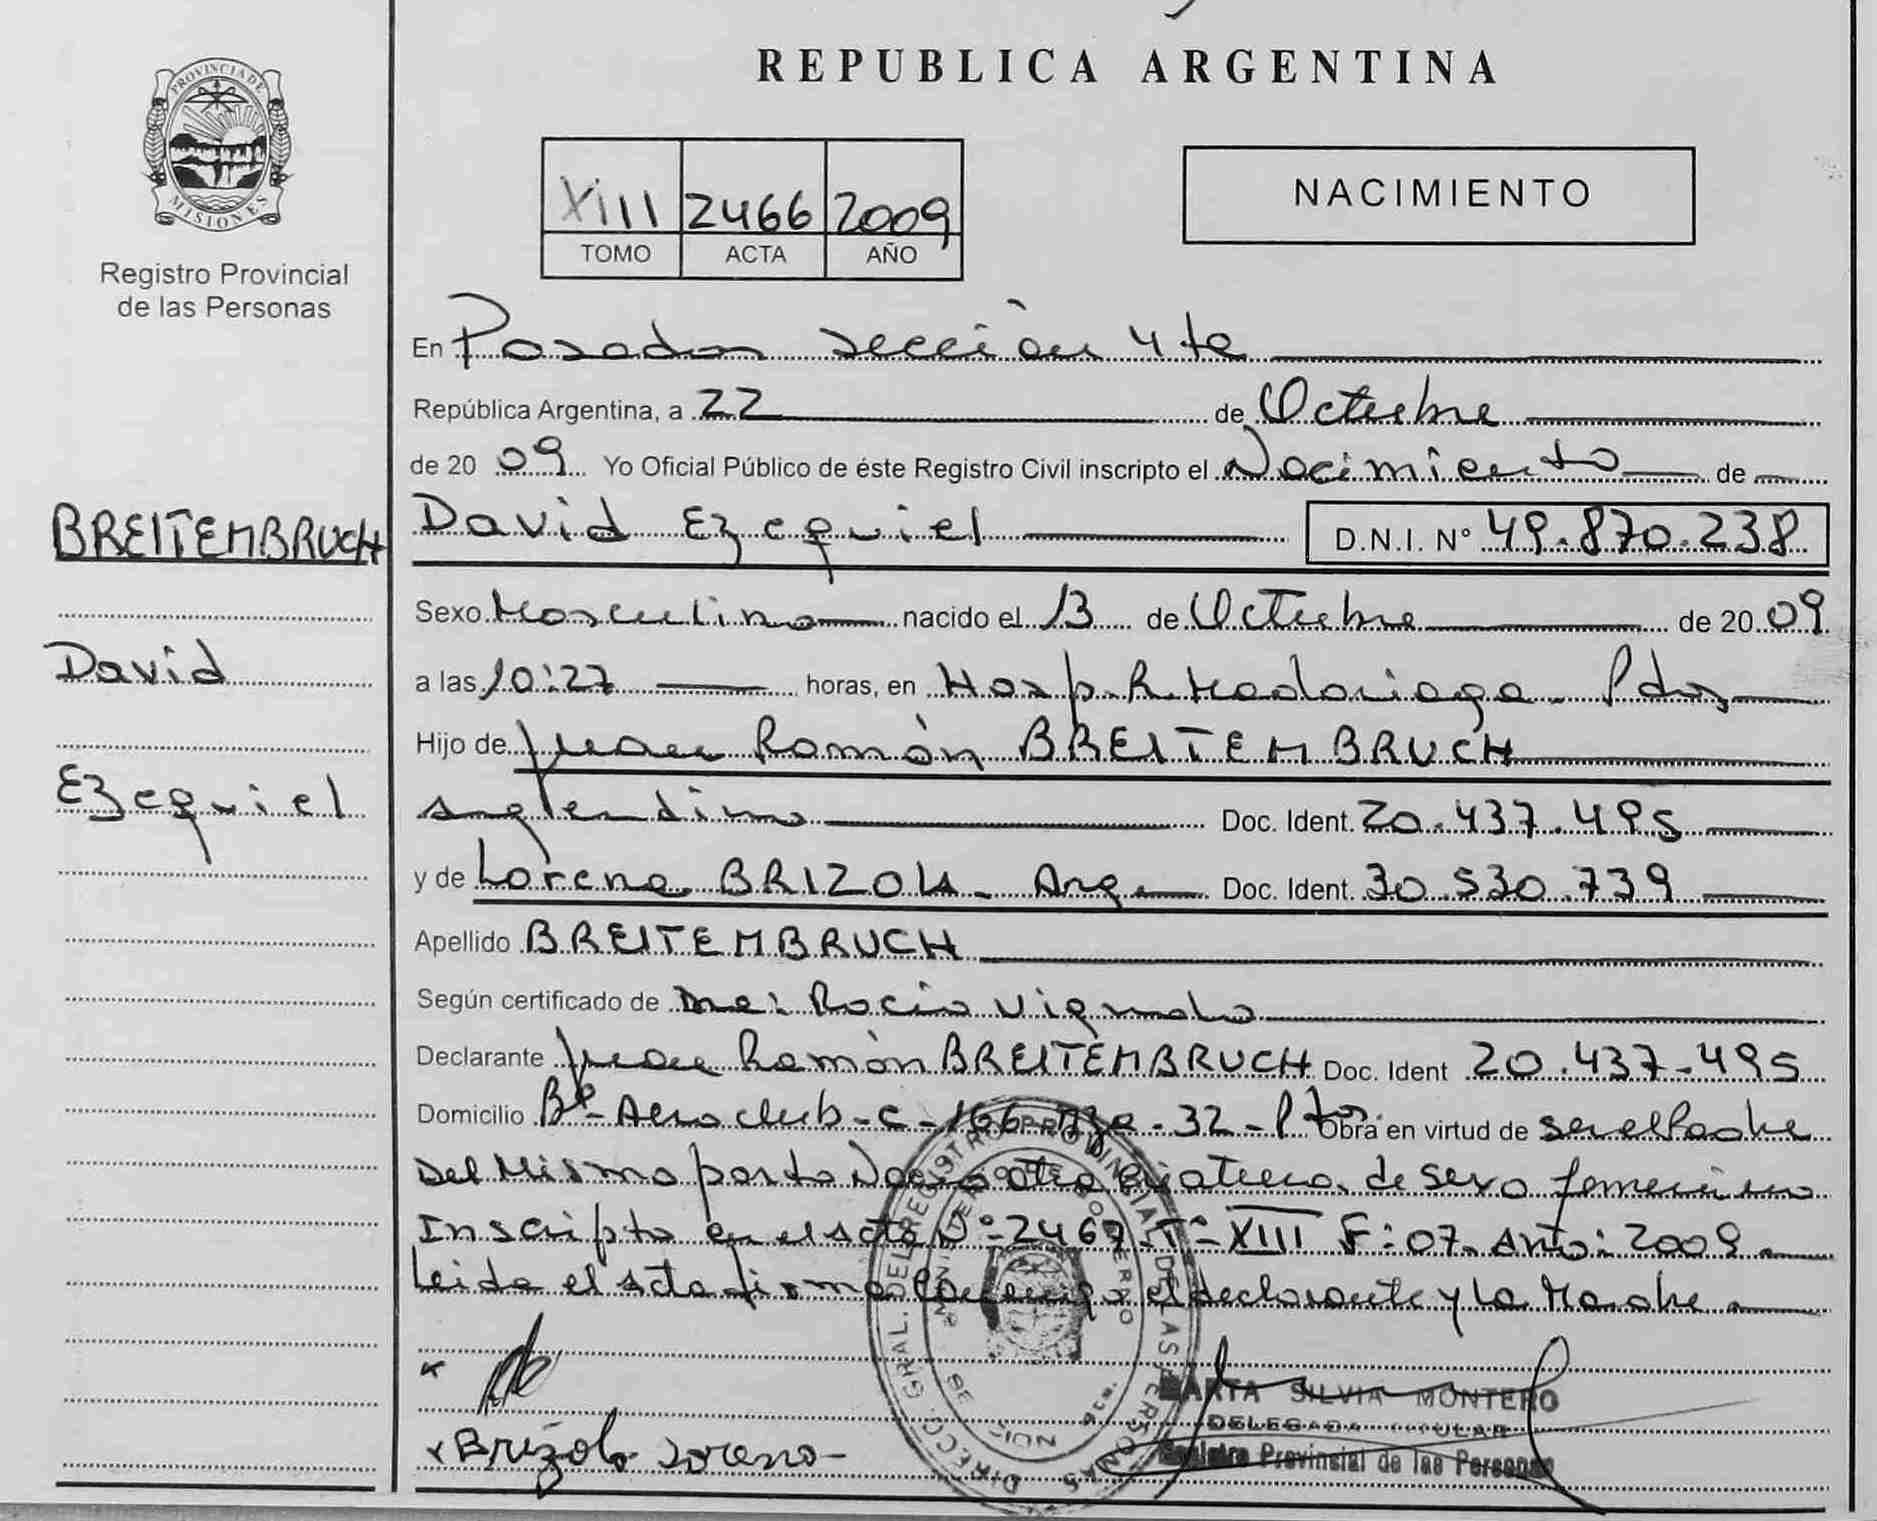 REPUBLICA ARGENTINA
PROVINCIA DE MISIONES
Registro Provincial
de las Personas
XIII 2466 2009
TOMO ACTA AÑO
NACIMIENTO
En Posadas sección 4ta
República Argentina, a 22 de Octubre
de 20 09 Yo Oficial Público de éste Registro Civil inscripto el Nacimiento de
BREITEMBRUCH
David
Ezequiel
David Ezequiel D.N.I. N° 49.870.238
Sexo Masculino nacido el 13 de Octubre de 20 09
a las 10:27 horas, en Hosp. R. Madariaga - Pdas
Hijo de Juan Ramón BREITEMBRUCH
Argentino Doc. Ident. 20.437.495
y de Lorena BRIZOLA - Arg. Doc. Ident. 30.530.739
Apellido BREITEMBRUCH
Según certificado de Rocio
Declarante Juan Ramón BREITEMBRUCH Doc. Ident 20.437-495
Domicilio B°- Aeroclub - C - 166 - Mza - 32 - Obra en virtud de ser el Padre
Del Mismo parto Nacio otra criatura de sexo femenino
Inscripto en el acta N°- 2467 T°- XIII F: 07. Año: 2009
Leida el acta firma conmigo el declarante y La Madre
x
x Brizola Lorena -
MARTA SILVIA MONTERO
DELEGADA TITULAR
Registro Provincial de las Personas